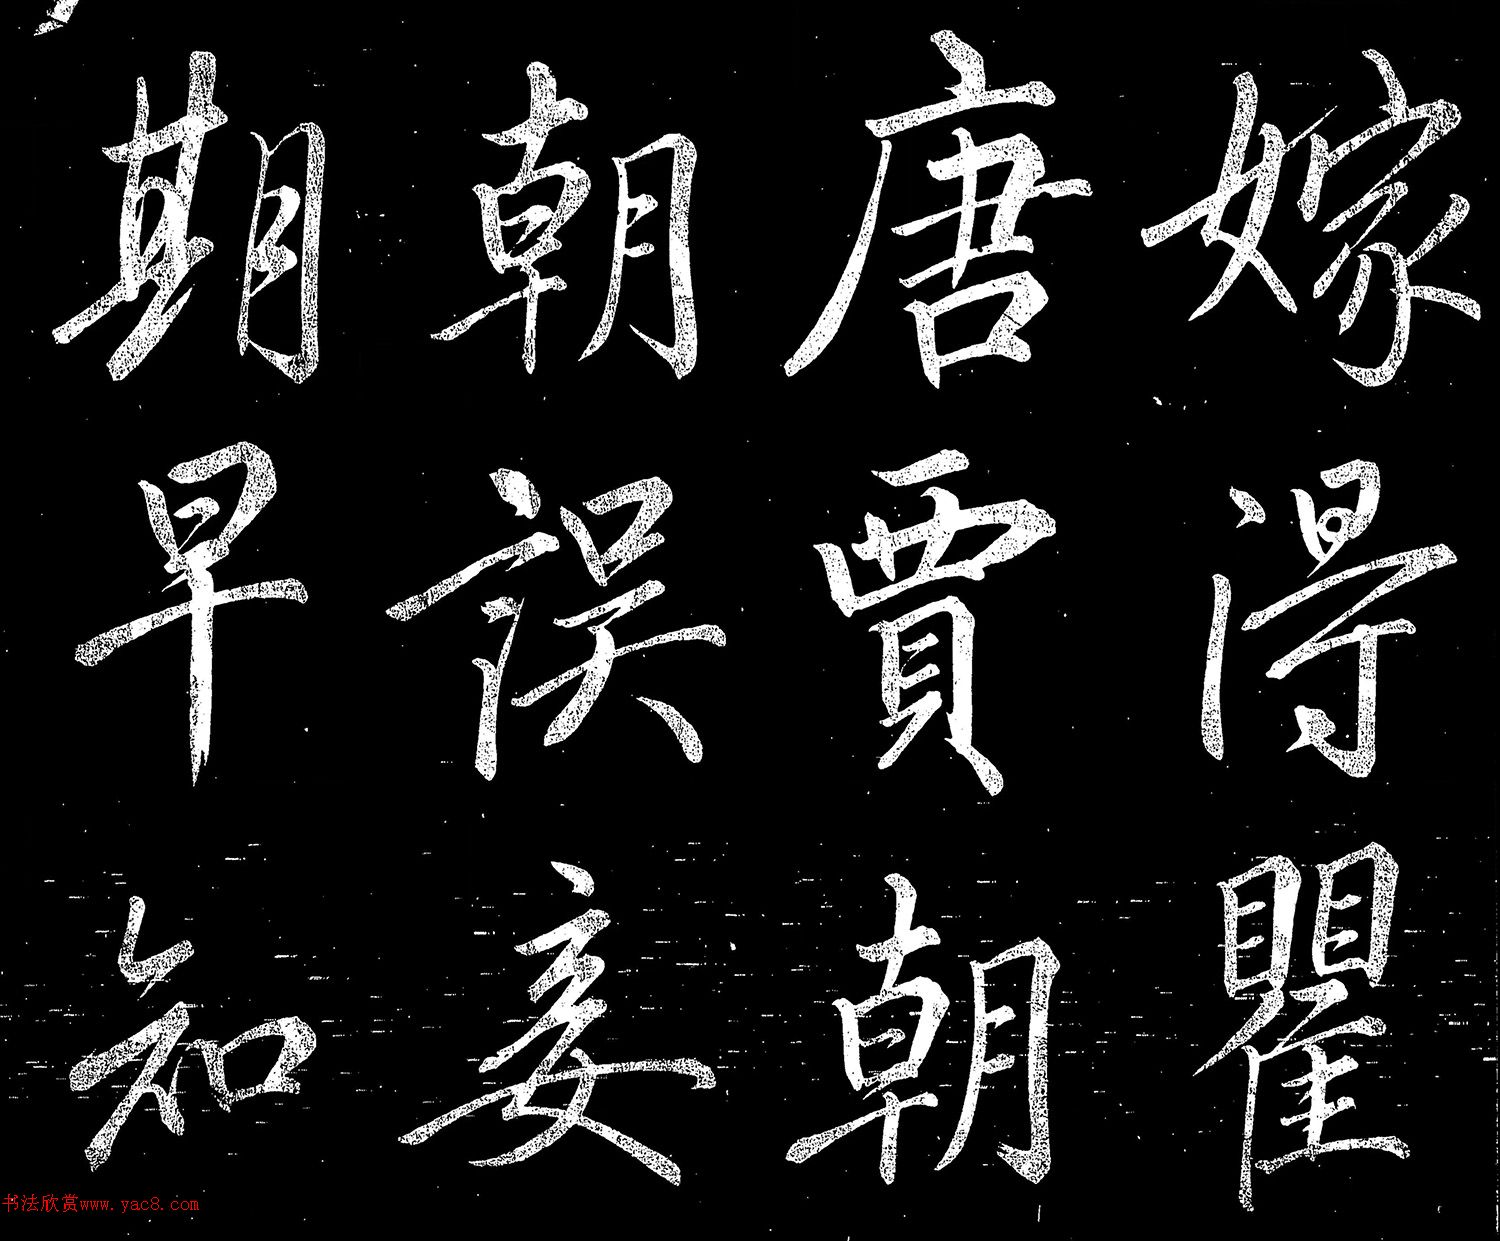 嫁得瞿
唐賈朝
朝誤妾
期早知
书法欣赏www.yac8.com